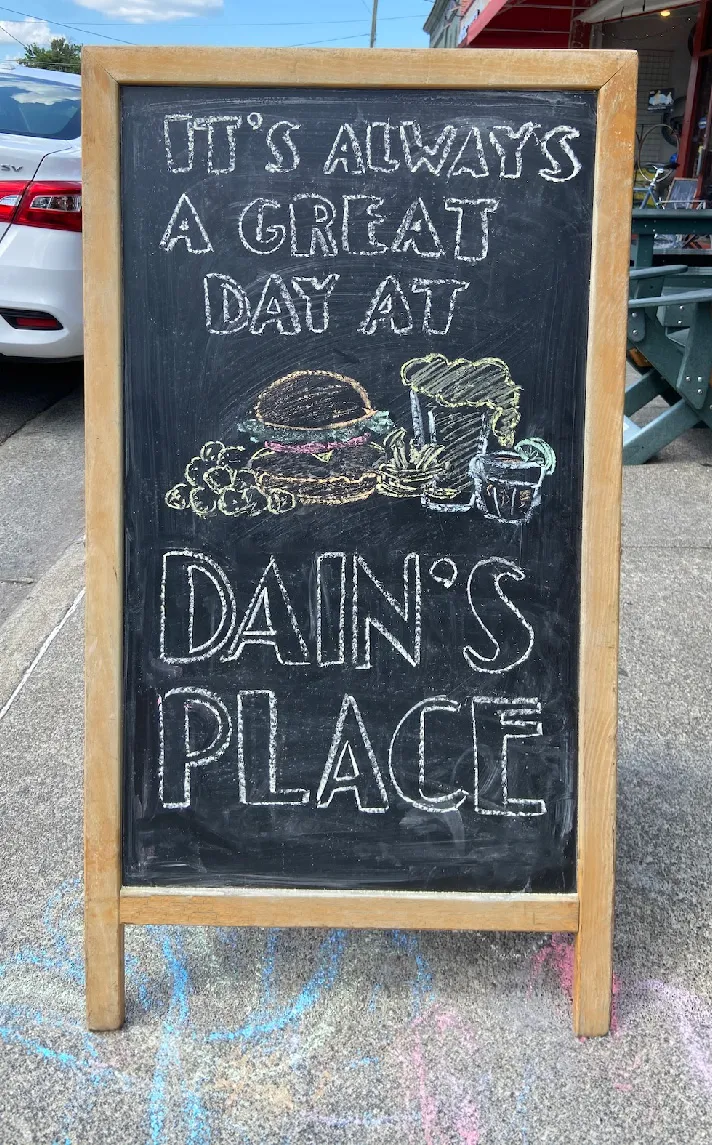 IT'S ALWAYS
A GREAT
DAY AT
DAIN'S
PLACE
SV